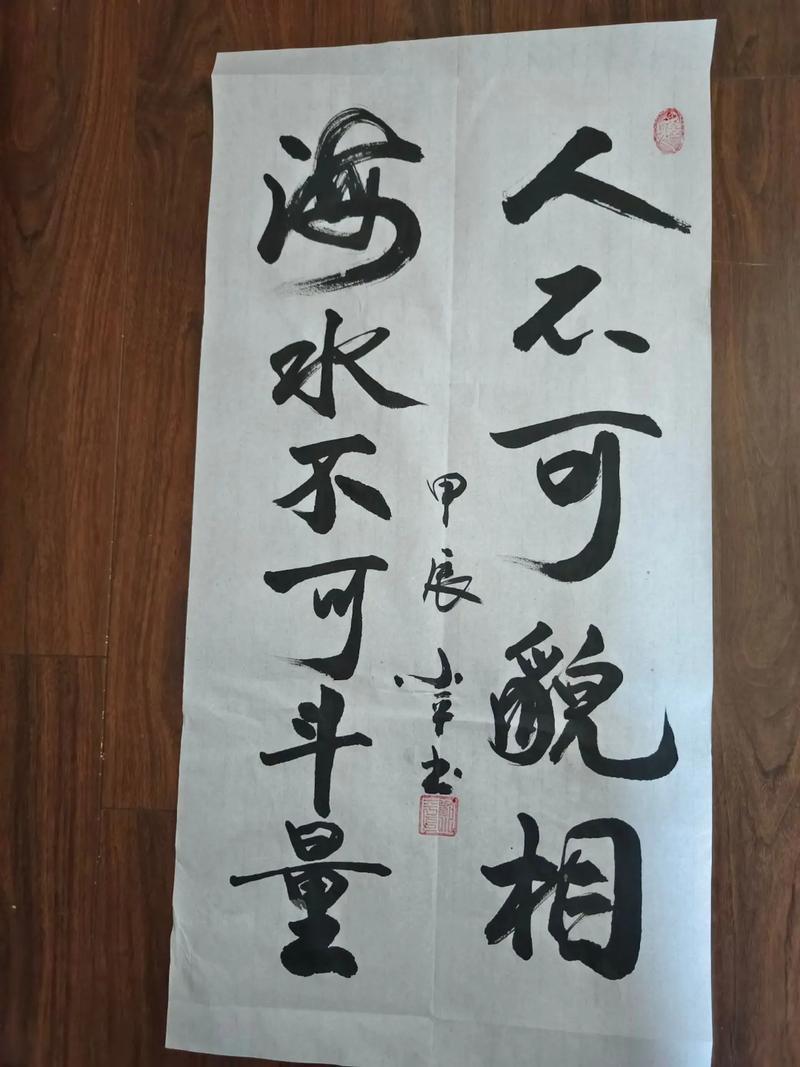 人不可貌相
海水不可斗量
甲辰 小平书